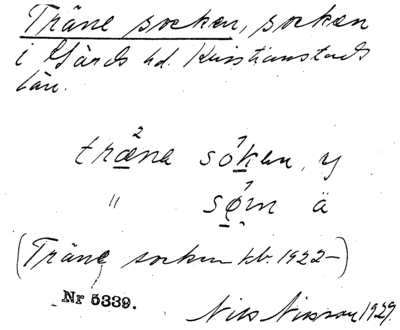 Träne socken, socken
i Gärds hd. Kristianstads
län.
træ²na só¹ken, y
" sø¹n ä
(Träne socken kb. 1922-)
Nr 5339.
Nils Nilsson 1929.